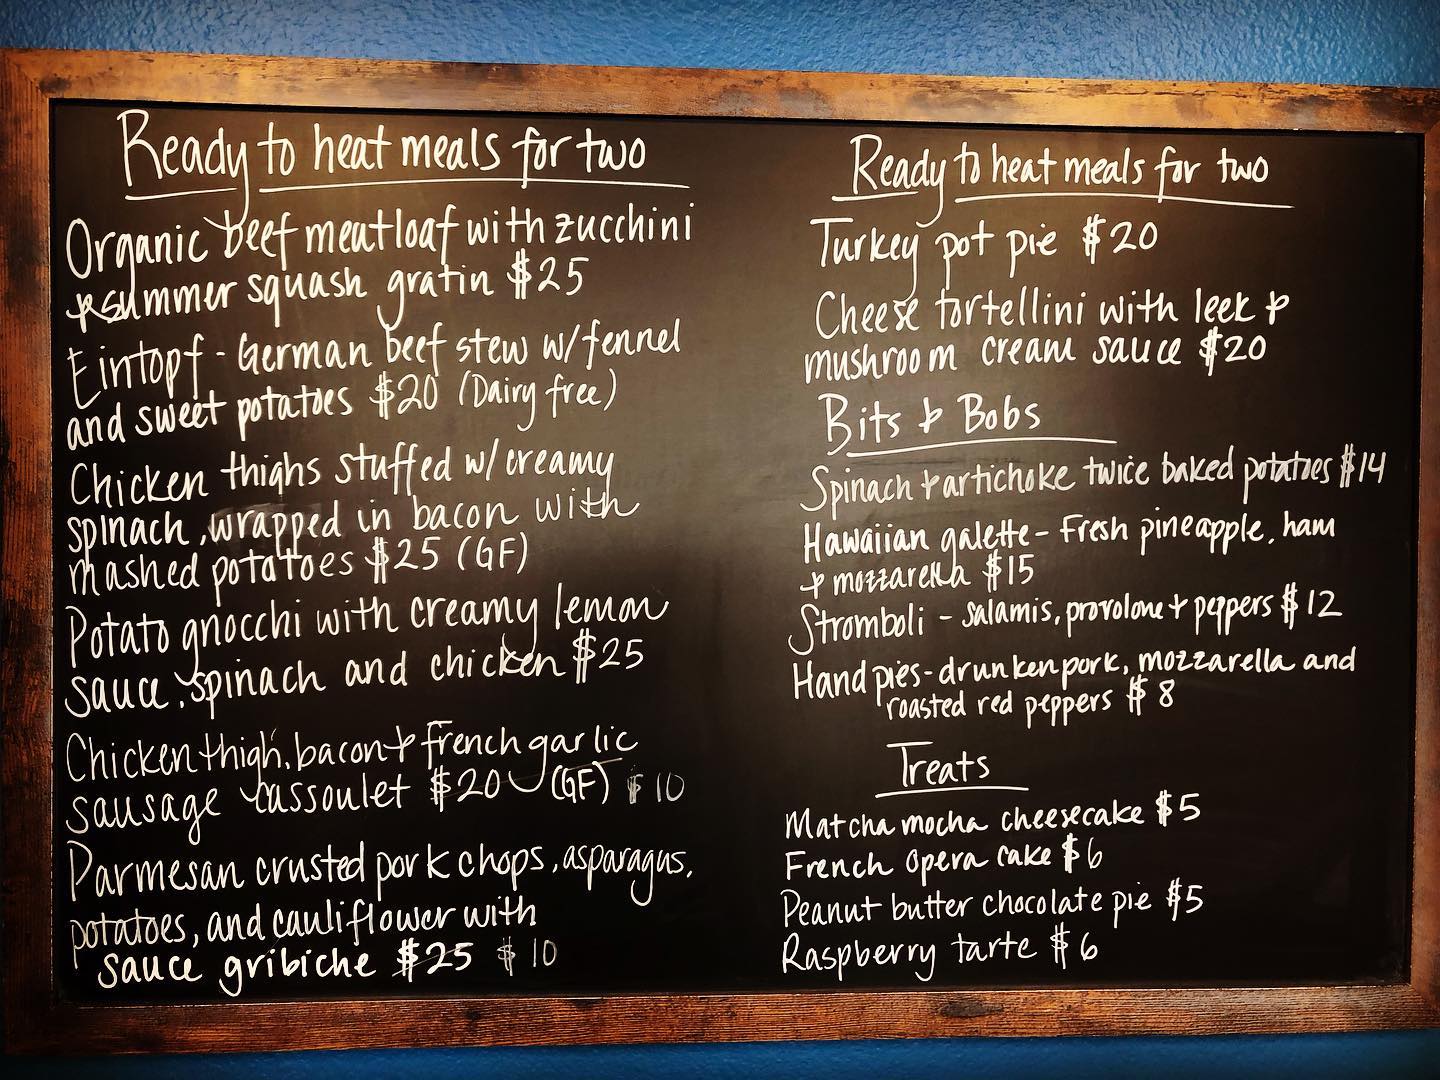 Ready to heat meals for two
Organic beef meatloaf with zucchini
& summer squash gratin $25
Eintopf - German beef stew w/ fennel
and sweet potatoes $20 (Dairy free)
Chicken thighs stuffed w/ creamy
spinach, wrapped in bacon with
mashed potatoes $25 (GF)
Potato gnocchi with creamy lemon
sauce, spinach and chicken $25
Chicken thigh, bacon & french garlic
sausage cassoulet $20 (GF) $10
Parmesan crusted pork chops, asparagus,
potatoes, and cauliflower with
sauce gribiche $25 $10
Ready to heat meals for two
Turkey pot pie $20
Cheese tortellini with leek &
mushroom cream sauce $20
Bits & Bobs
Spinach + artichoke twice baked potatoes $14
Hawaiian galette - Fresh pineapple, ham
& mozzarella $15
Stromboli - salamis, provolone + peppers $12
Hand pies - drunken pork, mozzarella and
roasted red peppers $8
Treats
Matcha mocha cheesecake $5
French Opera Cake $6
Peanut butter chocolate pie $5
Raspberry tarte $6